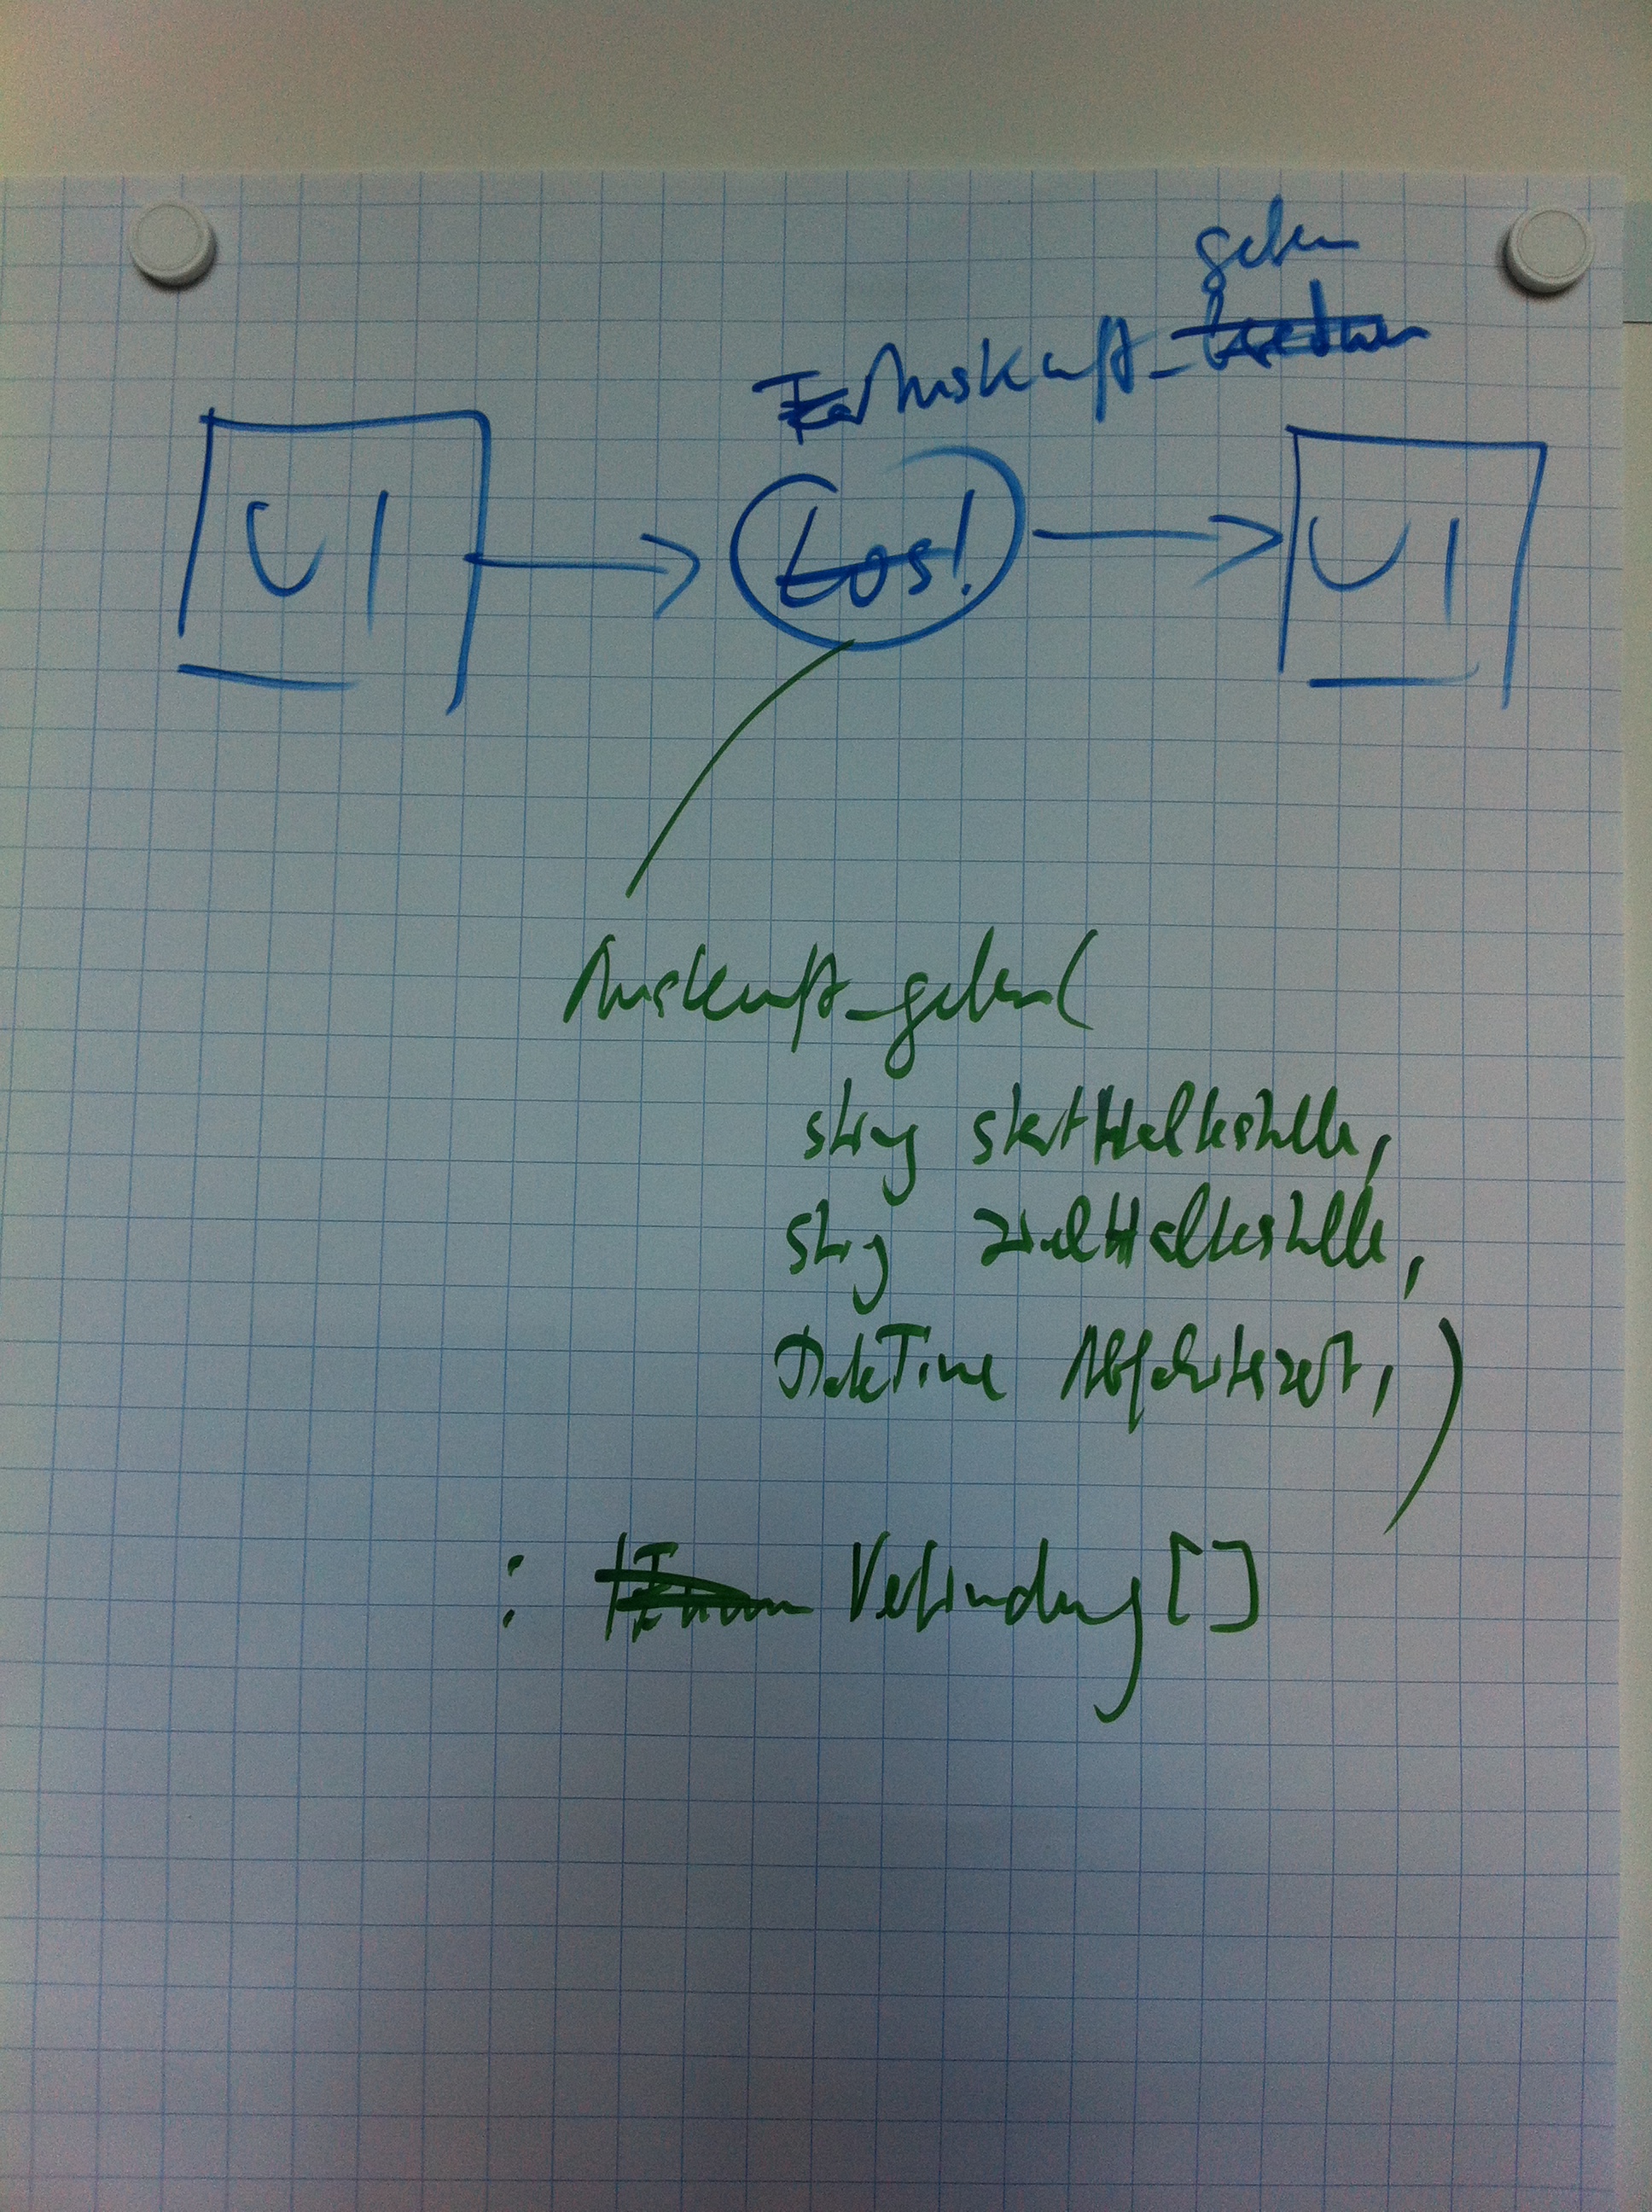 geben
Auskunft_
UI
Los!
UI
Auskunft_geben(
string startHaltestelle,
string zielHaltestelle,
DateTime Abfahrtszeit, )
: Verbindung[]